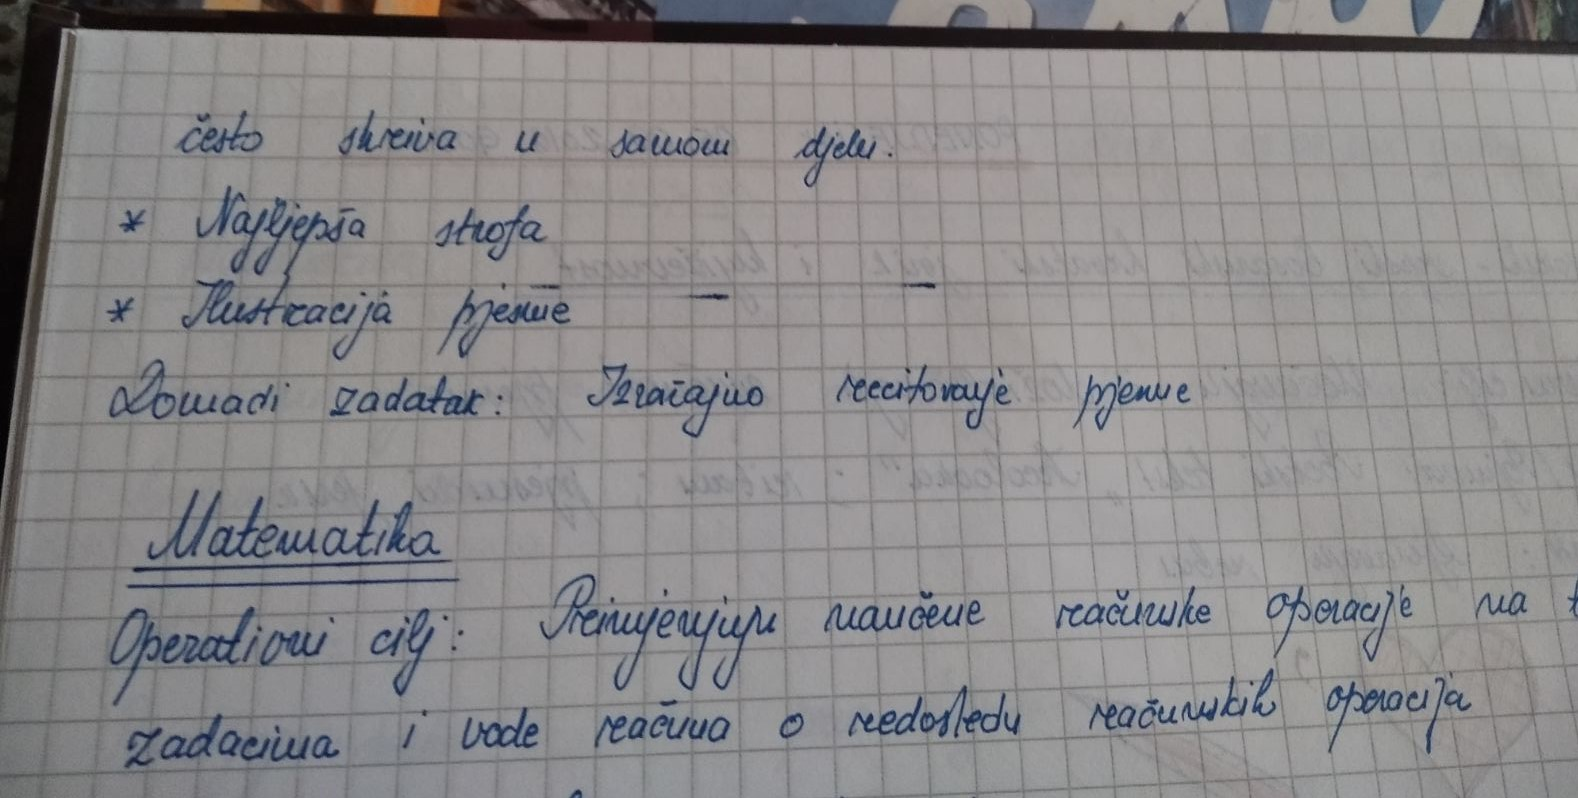 često skriva u samom djelu.
* Najljepša strofa
* Ilustracija pjesme
Domaći zadatak: Izražajno reecitovanje pjesme
Matematika
Operativni cilj: Primjenjuju naučene računske operacije na
zadacima i vode računa o redosledu računskih operacija